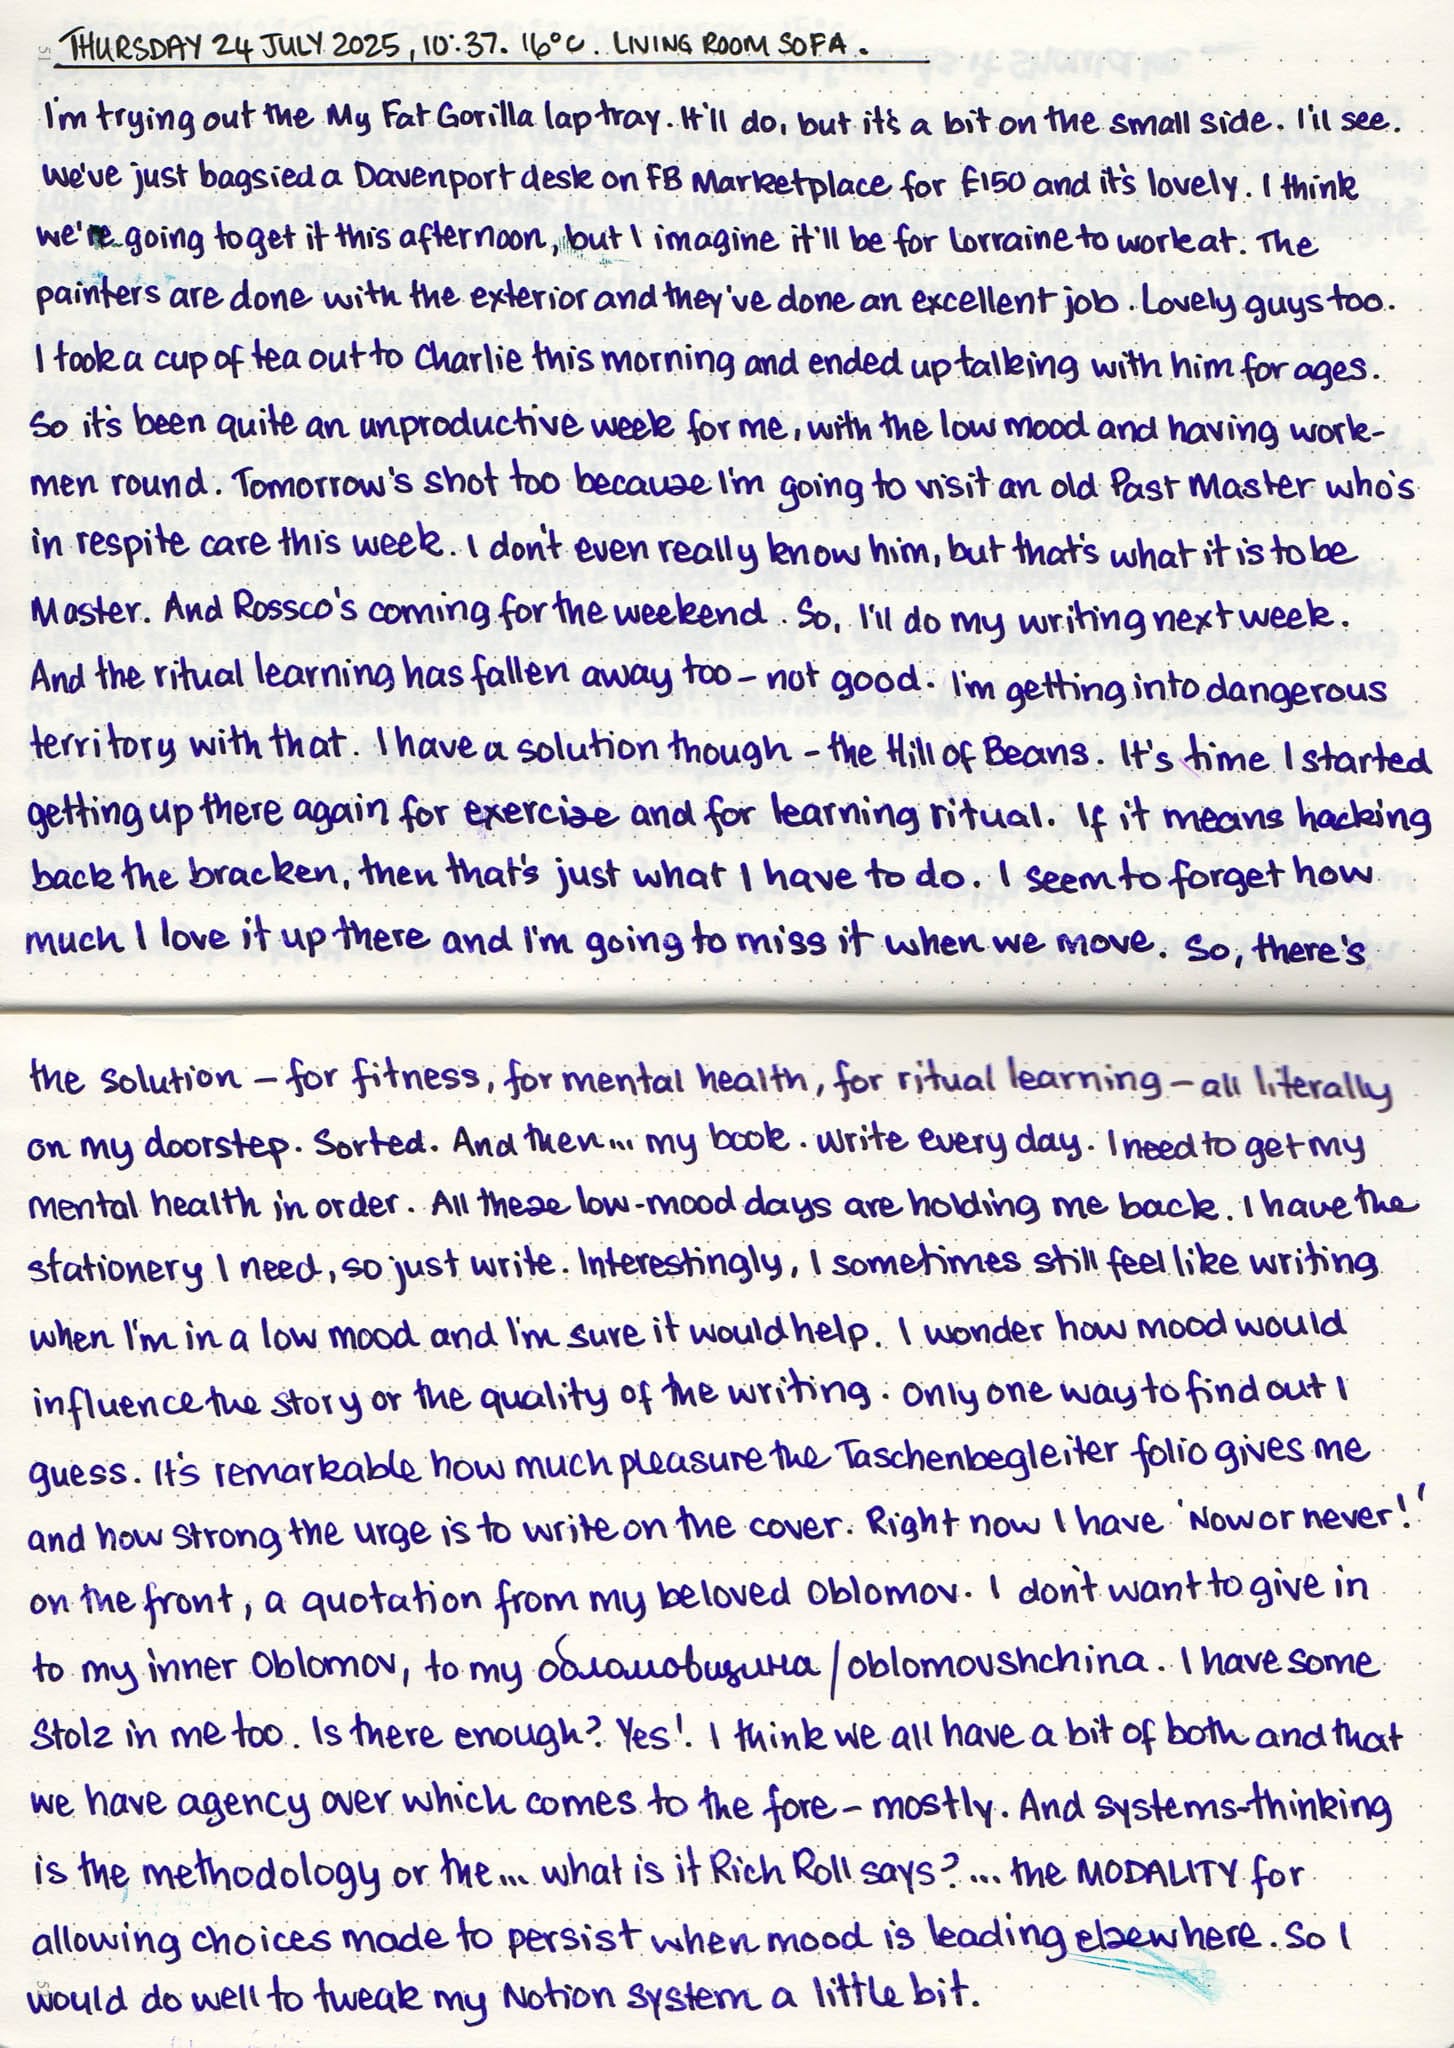 THURSDAY 24 JULY 2025, 10:37. 16°C. LIVING ROOM SOFA.
I'm trying out the My Fat Gorilla lap tray. It'll do, but it's a bit on the small side. I'll see.
We've just bagsied a Davenport desk on FB Marketplace for £150 and it's lovely. I think
we're going to get it this afternoon, but I imagine it'll be for Lorraine to work at. The
painters are done with the exterior and they've done an excellent job. Lovely guys too.
I took a cup of tea out to Charlie this morning and ended up talking with him for ages.
So it's been quite an unproductive week for me, with the low mood and having work-
men round. Tomorrow's shot too because I'm going to visit an old Past Master who's
in respite care this week. I don't even really know him, but that's what it is to be
Master. And Rossco's coming for the weekend. So, I'll do my writing next week.
And the ritual learning has fallen away too – not good. I'm getting into dangerous
territory with that. I have a solution though – the Hill of Beans. It's time I started
getting up there again for exercise and for learning ritual. If it means hacking
back the bracken, then that's just what I have to do. I seem to forget how
much I love it up there and I'm going to miss it when we move. So, there's
the solution – for fitness, for mental health, for ritual learning – all literally
on my doorstep. Sorted. And then... my book. Write every day. I need to get my
mental health in order. All these low-mood days are holding me back. I have the
stationery I need, so just write. Interestingly, I sometimes still feel like writing
when I'm in a low mood and I'm sure it would help. I wonder how mood would
influence the story or the quality of the writing. Only one way to find out I
guess. It's remarkable how much pleasure the Taschenbegleiter folio gives me
and how strong the urge is to write on the cover. Right now I have 'Now or never!'
on the front, a quotation from my beloved Oblomov. I don't want to give in
to my inner Oblomov, to my обломовщина/oblomovshchina. I have some
Stolz in me too. Is there enough? Yes! I think we all have a bit of both and that
we have agency over which comes to the fore – mostly. And systems-thinking
is the methodology or the... what is it Rich Roll says?... the MODALITY for
allowing choices made to persist when mood is leading elsewhere. So I
would do well to tweak my Notion system a little bit.